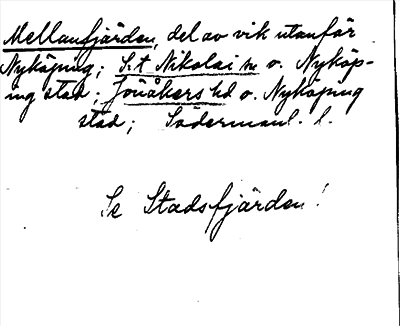 Mellanfjärden, del av vik utanför
Nyköping; S:t Nikolai sn o. Nyköp-
ing stad; Jönåkers hd o. Nyköping
stad; Söderman l. l.
Se Stadsfjärden!